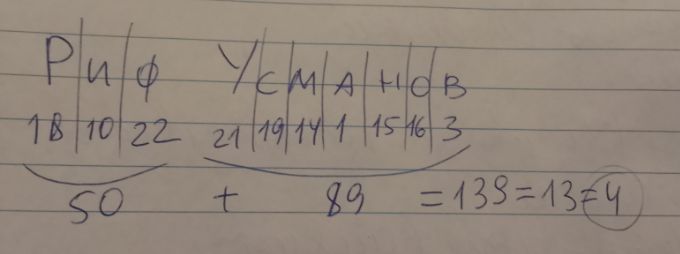 Риф Усманов
18 10 22 21 19 14 1 15 16 3
50 + 89 = 139 = 13 = 4